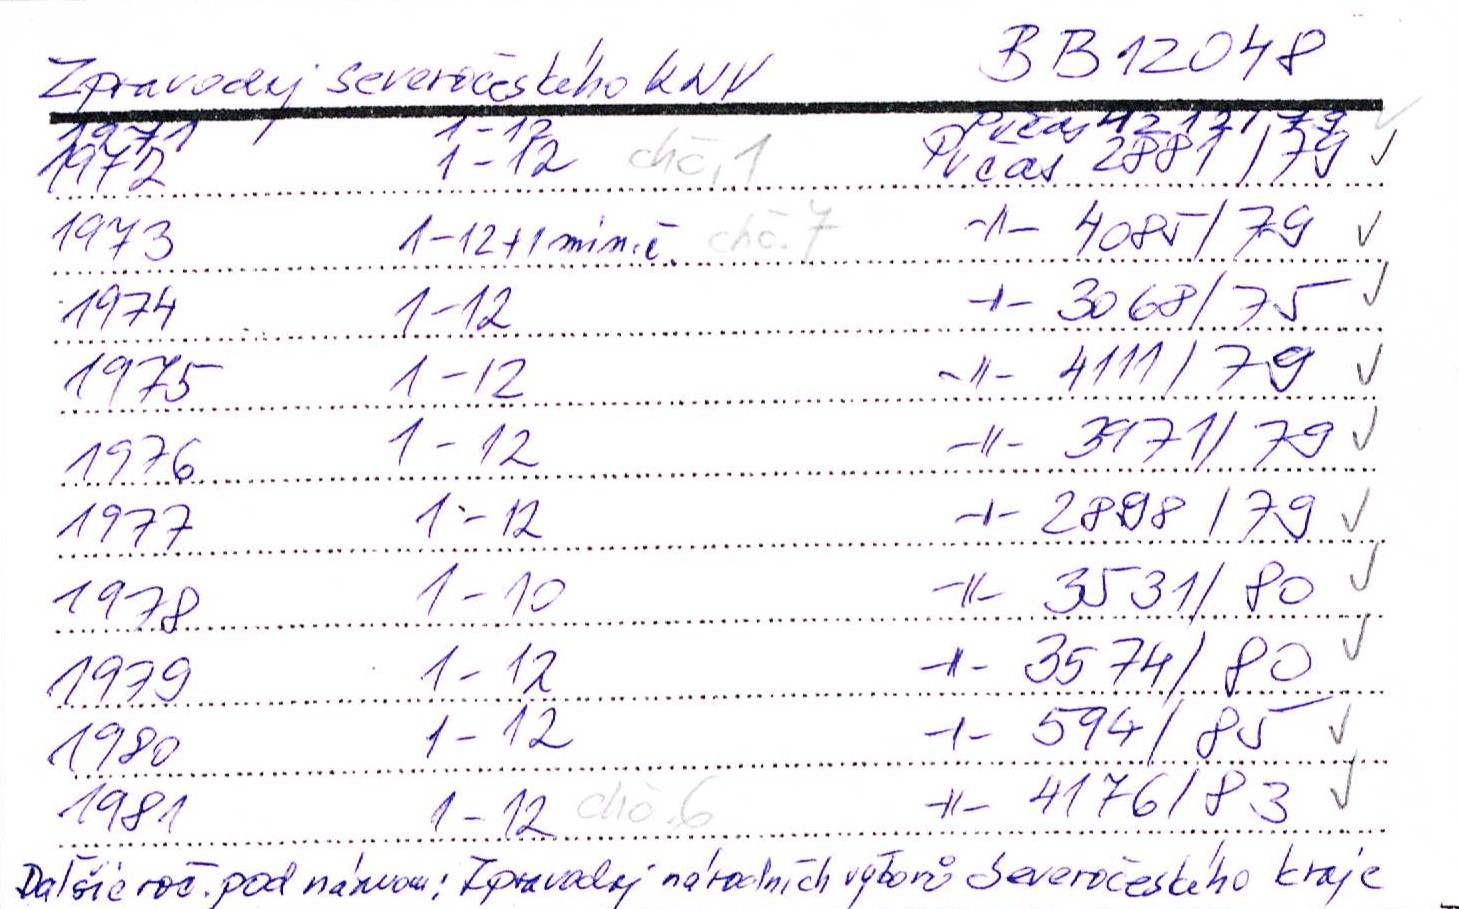 Zpravodaj Severočeského KNV BB12048
1971 1-12 Pvčas 4213/79
1972 1-12 chč,1 Pvčas 2881/79 ✓
1973 1-12+1 mim.č. chč.7 -"- 4085/79 ✓
1974 1-12 -"- 3068/75 ✓
1975 1-12 -"- 4111/79 ✓
1976 1-12 -"- 3971/79 ✓
1977 1-12 -"- 2898/79 ✓
1978 1-10 -"- 3531/80 ✓
1979 1-12 -"- 3574/80 ✓
1980 1-12 -"- 594/85 ✓
1981 1-12 chč.6 -"- 4176/83 ✓
Ďalšie roč. pod názvom: Zpravodaj národních výborů Severočeského kraje